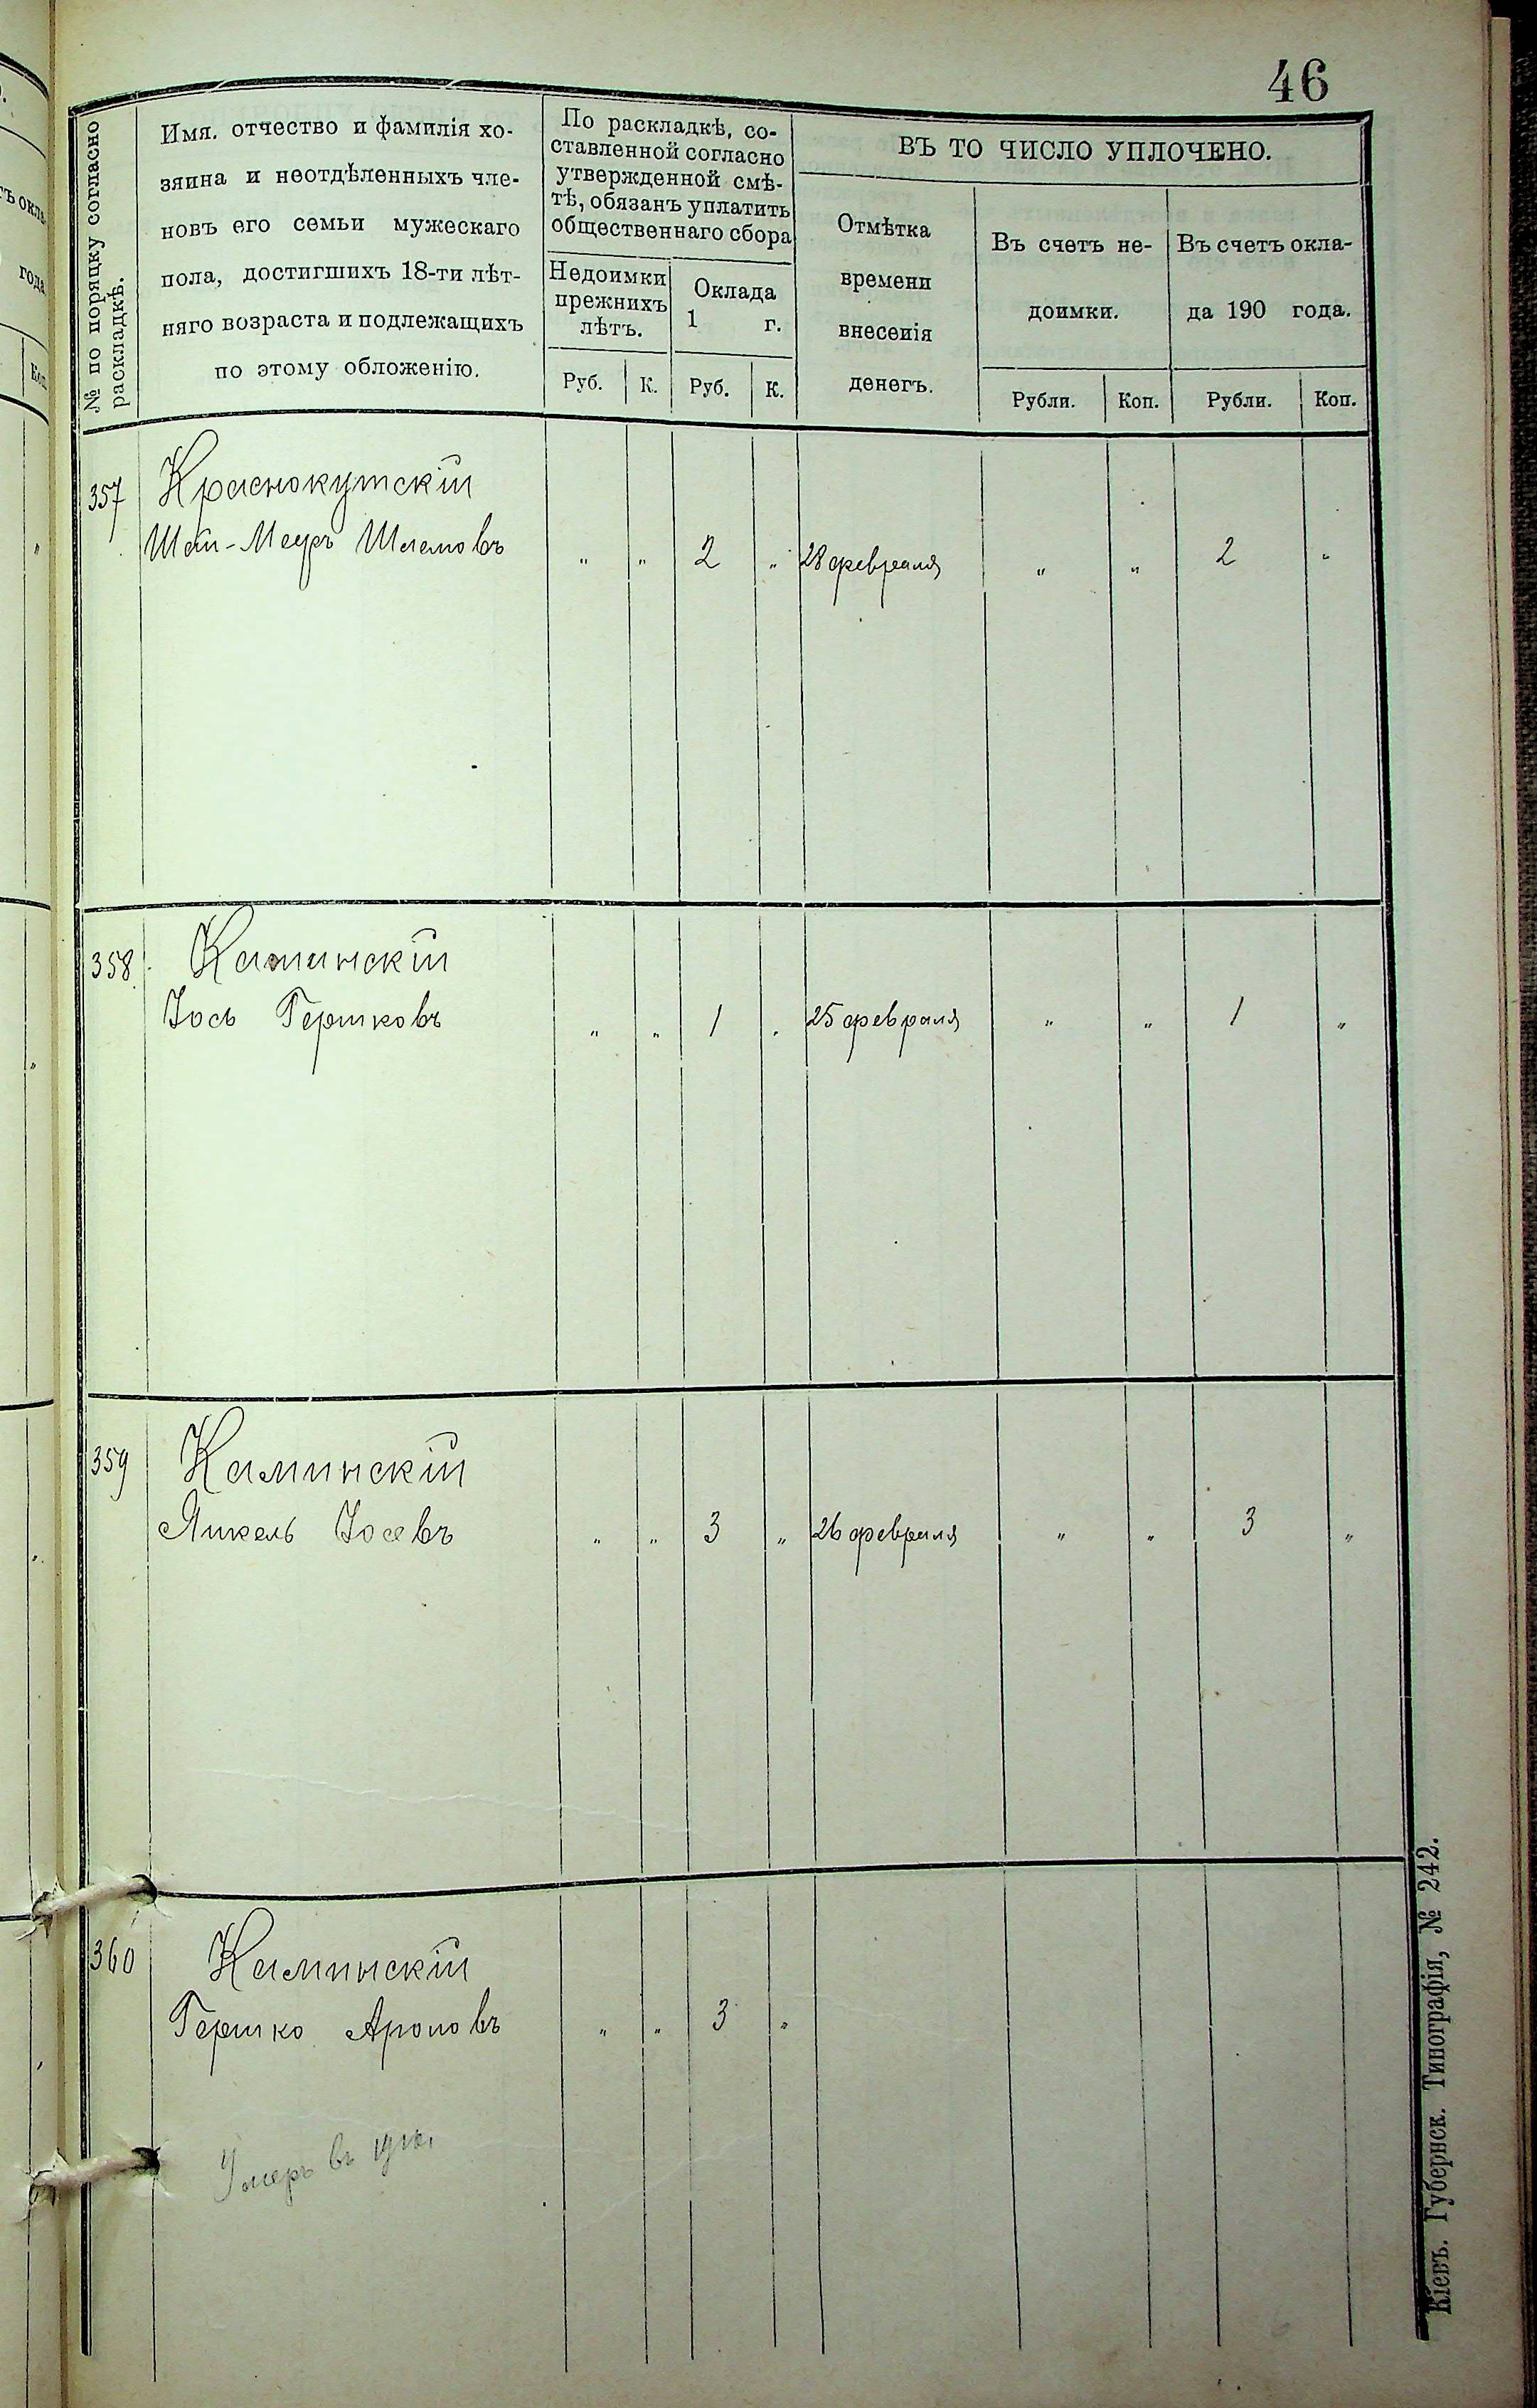 46
№ по поряцку согласно
раскладкѣ.
Имя. отчество и фамилія хо-
зяина и неотдѣленныхъ чле-
новъ его семьи мужескаго
пола, достигшихъ 18-ти лѣт-
няго возраста и подлежащихъ
по этому обложенію.
По раскладкѣ, со-
ставленной согласно
утвержденной смѣ-
тѣ, обязанъ уплатить
общественнаго сбора
Недоимки
прежнихъ
лѣтъ.
Оклада
1 г.
Руб. К. Руб. К.
ВЪ ТО ЧИСЛО УПЛОЧЕНО.
Отмѣтка
времени
внесенія
денегъ.
Въ счетъ не-
доимки.
Въ счетъ окла-
да 190 года.
Рубли. Коп. Рубли. Коп.
357 Краснокутскій
Меуръ Шлемовъ " " 2 " 28 февраля " " 2 "
358. Каминскій
Іось Гершковъ " " 1 " 25 февраля " " 1 "
359 Каминскій
Янкель Іосевъ " " 3 " 26 февраля " " 3 "
360 Каминскій
Гершко Ароновъ " " 3 "
Умеръ въ
Кіевъ. Губернск. Типографія, № 242.